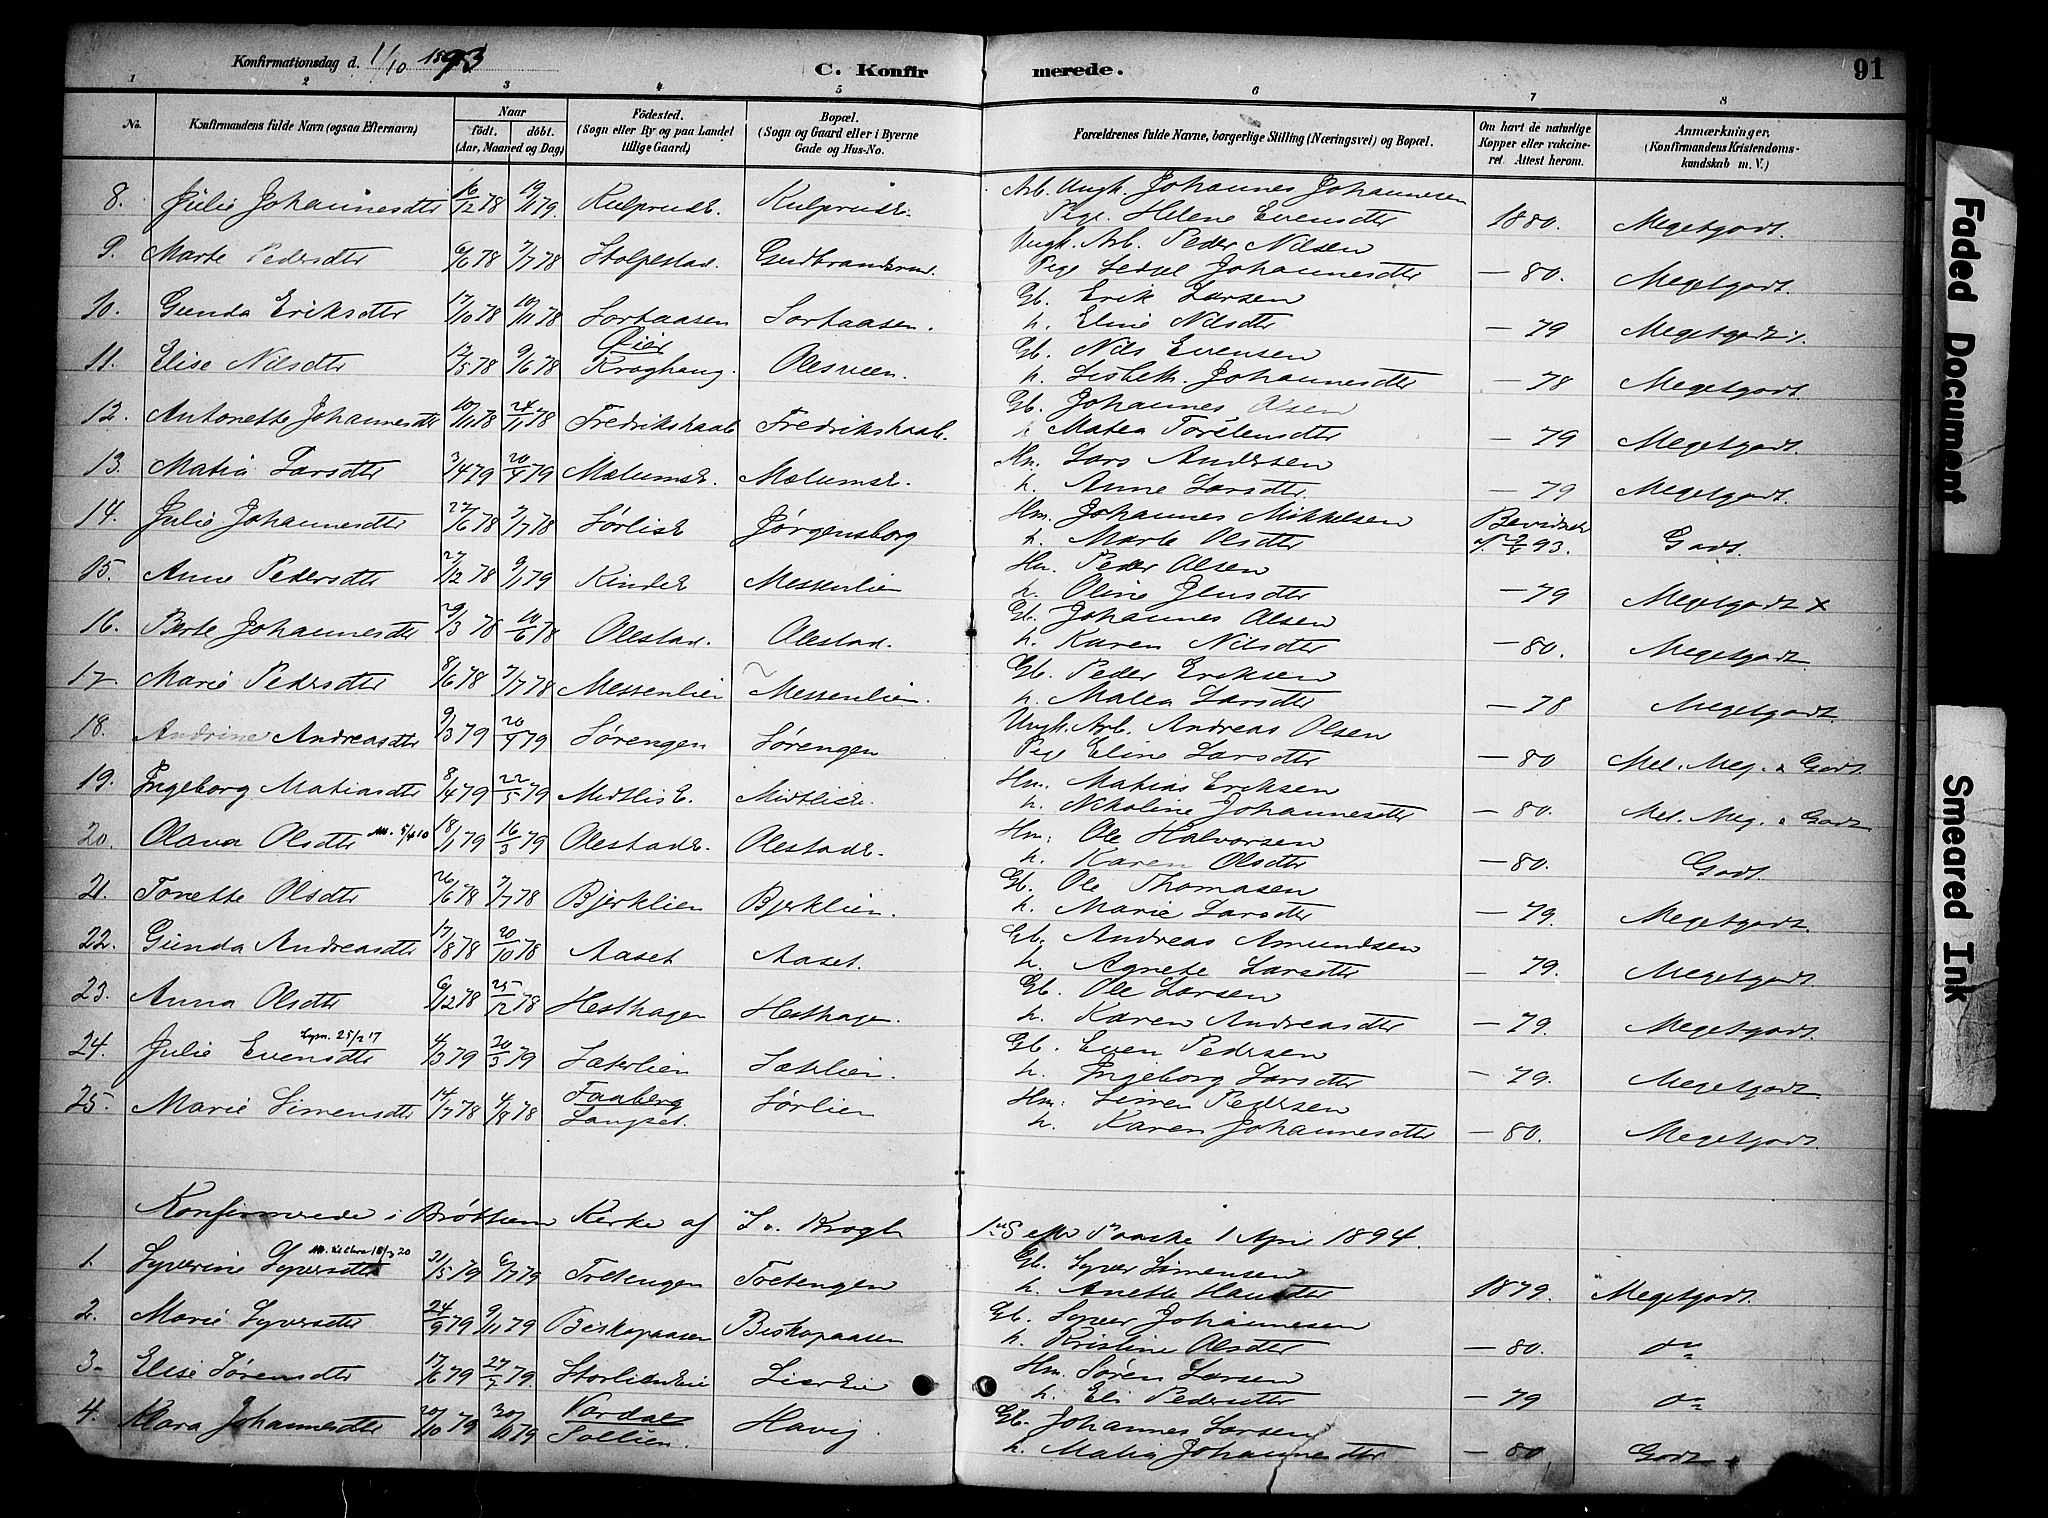 Konfirmationsdag d. 1/10 1893 C. Konfirmerede. 91
1 2 3 4 5 6 7 8
No. Konfirmandens fulde Navn (ogsaa Efternavn) Naar født. døbt. (Aar, Maaned og Dag) Födested. (Sogn eller By og paa Landet tillige Gaard) Bopæl. (Sogn og Gaard eller i Byerne Gade og Hus-No. Forældrenes fulde Navne, borgerlige Stilling (Næringsvei) og Bopæl. Om havt de naturlige Kopper eller vakcineret. Attest herom. Anmærkninger, (Konfirmandens Kristendomskundskab m. V.)
8. Julie Johannesdter 16/12 78 19/1 79 KulprudE. Kulprude. Arb. Ungk. Johannes Johannesen
Pige. Helene Evensdter 1880. Megetgodt.
9. Marte Pedersdter 6/6 78 7/7 78 Stolpestad. Gudbrandsrud Ungk. Arb. Peder Nilsen
Pige Sidsel Johannesdter – 80. Megetgodt.
10. Gunda Eriksdter 17/10 78 10/11 78 Sortaasen Sortaasen. Gb. Erik Larsen
h. Eline Nilsdter – 79 Megetgodt.
11. Elise Nilsdter 12/5 78 9/6 78 Øier Kroghaug. Olesveen. Gb. Nils Evensen
h. Lisbeth Johannesdter – 78 Megetgodt.
12. Antonette Johannesdter 10/11 78 24/11 78 Fredrikskaab Fredrikskaab. Gb. Johannes Olsen
h Matea Torstensdter – 79 Megetgodt.
13. Matia Larsdter 3/4 79 20/4 79 MælumsE. MælumsE. Hm. Lars Andersen
h. Anne Larsdter – 79 Megetgodt.
14. Julie Johannesdter 27/6 78 7/7 78 SørliE Jørgensborg Hm. Johannes Mikkelsen
h. Marte Olsdter 93. Godt.
15. Anne Pedersdter 27/12 78 9/1 79 KindeE Messenlien Hm. Peder Olsen
h. Oline Jensdter – 79 Megetgodt x
16. Berte Johannesdter 29/3 78 10/6 78 Olestad. Olestad. Gb. Johannes Olsen
h. Karen Nilsdter – 80. Megetgodt
17 Marie Pedersdter 8/6 78 7/7 78 Messenlien Messenlien. Gb. Peder Eriksen
h. Matea Larsdter – 78 Megetgodt.
18. Andrine Andreasdter 9/3 79 20/4 79 Sørengen Sørengen Ungk. Arb. Andreas Olsen
Pige Eline Larsdter – 80 Mel. Meg. & Godt
19. Ingeborg Matiasdter 8/4 79 22/5 79 MidtliE. MidtliE. Hm. Matias Eriksen
h. Nikoline Johannesdter – 80. Mel. Meg. & Godt
20. Olava Olsdter Att. 5/4 10 18/1 79 16/3 79 OlestadE. OlestadE. Hm. Ole Halvorsen
h. Karen Olsdter – 80. Godt.
21. Tonette Olsdter 26/6 78 7/7 78 Bjerklien Bjerklien. Gb. Ole Thomasen
h. Marie Larsdter – 79. Megetgodt.
22. Gunda Andreasdter 17/8 78 20/10 78 Aaset Aaset. Gb. Andreas Amundsen
h. Agnete Larsdter – 79. Megetgodt.
23. Anna Olsdter 6/12 78 25/12 78 Hesthagen Hesthagen. Gb. Ole Larsen
h. Karen Andreasdter – 79. Megetgodt.
24. Julie Evensdter 25/2 17 4/3 79 20/3 79 Sæterlien Sæterlien. Gb. Even Pedersen
h. Ingeborg Larsdter – 79. Megetgodt.
25. Marie Simensdter 14/7 78 4/8 78 Faaberg Langset. Sørlien Hm. Simen Pedersen
h. Karen Johannesdter – 80. Megetgodt
Konfirmerede i Brøttum Kirke af S. Krogh 1ste S. efter Paaske 1 April 1894.
1. Syverine Syversdter 18/3 20 31/5 79 6/7 79 Tretengen Tretengen Gb. Syver Simensen
h. Anette Hansdter 1879. Megetgodt.
2. Marie Syversdter 24/9 79 9/11 79 Beskopaasen Biskopaasen Gb. Syver Johannesen
h. Kristine Olsdter – 80. do
3. Elise Sørensdter 17/6 79 27/7 79. StorlienEie LierEie Hm. Søren Larsen
h. Eli Pedersdter – 79 do
4. Klara Johannesdter 20/10 79 30/11 79 Vardal Sollien. Havig Gb. Johannes Larsen
h. Matia Johannesdter – 80 Godt
Faded Document
Smeared Ink